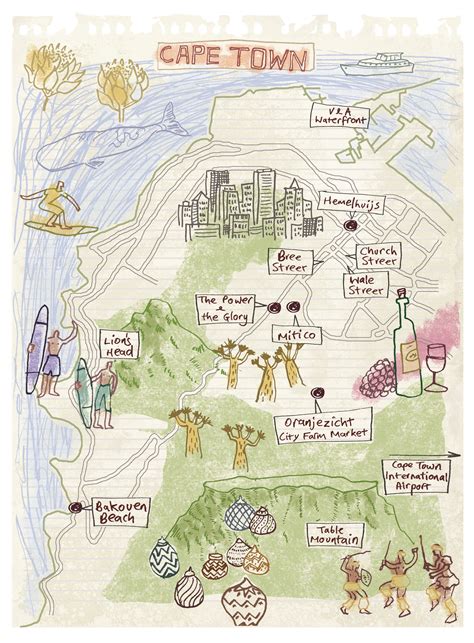 CAPE TOWN
V&A
Waterfront
Hemelhuijs
Bree
Street
Church
Street
Wale
Street
The Power
&
the Glory
Mitico
Lion's
Head
Oranjezicht
City Farm Market
Cape Town
International
Airport
Bakoven
Beach
Table
Mountain